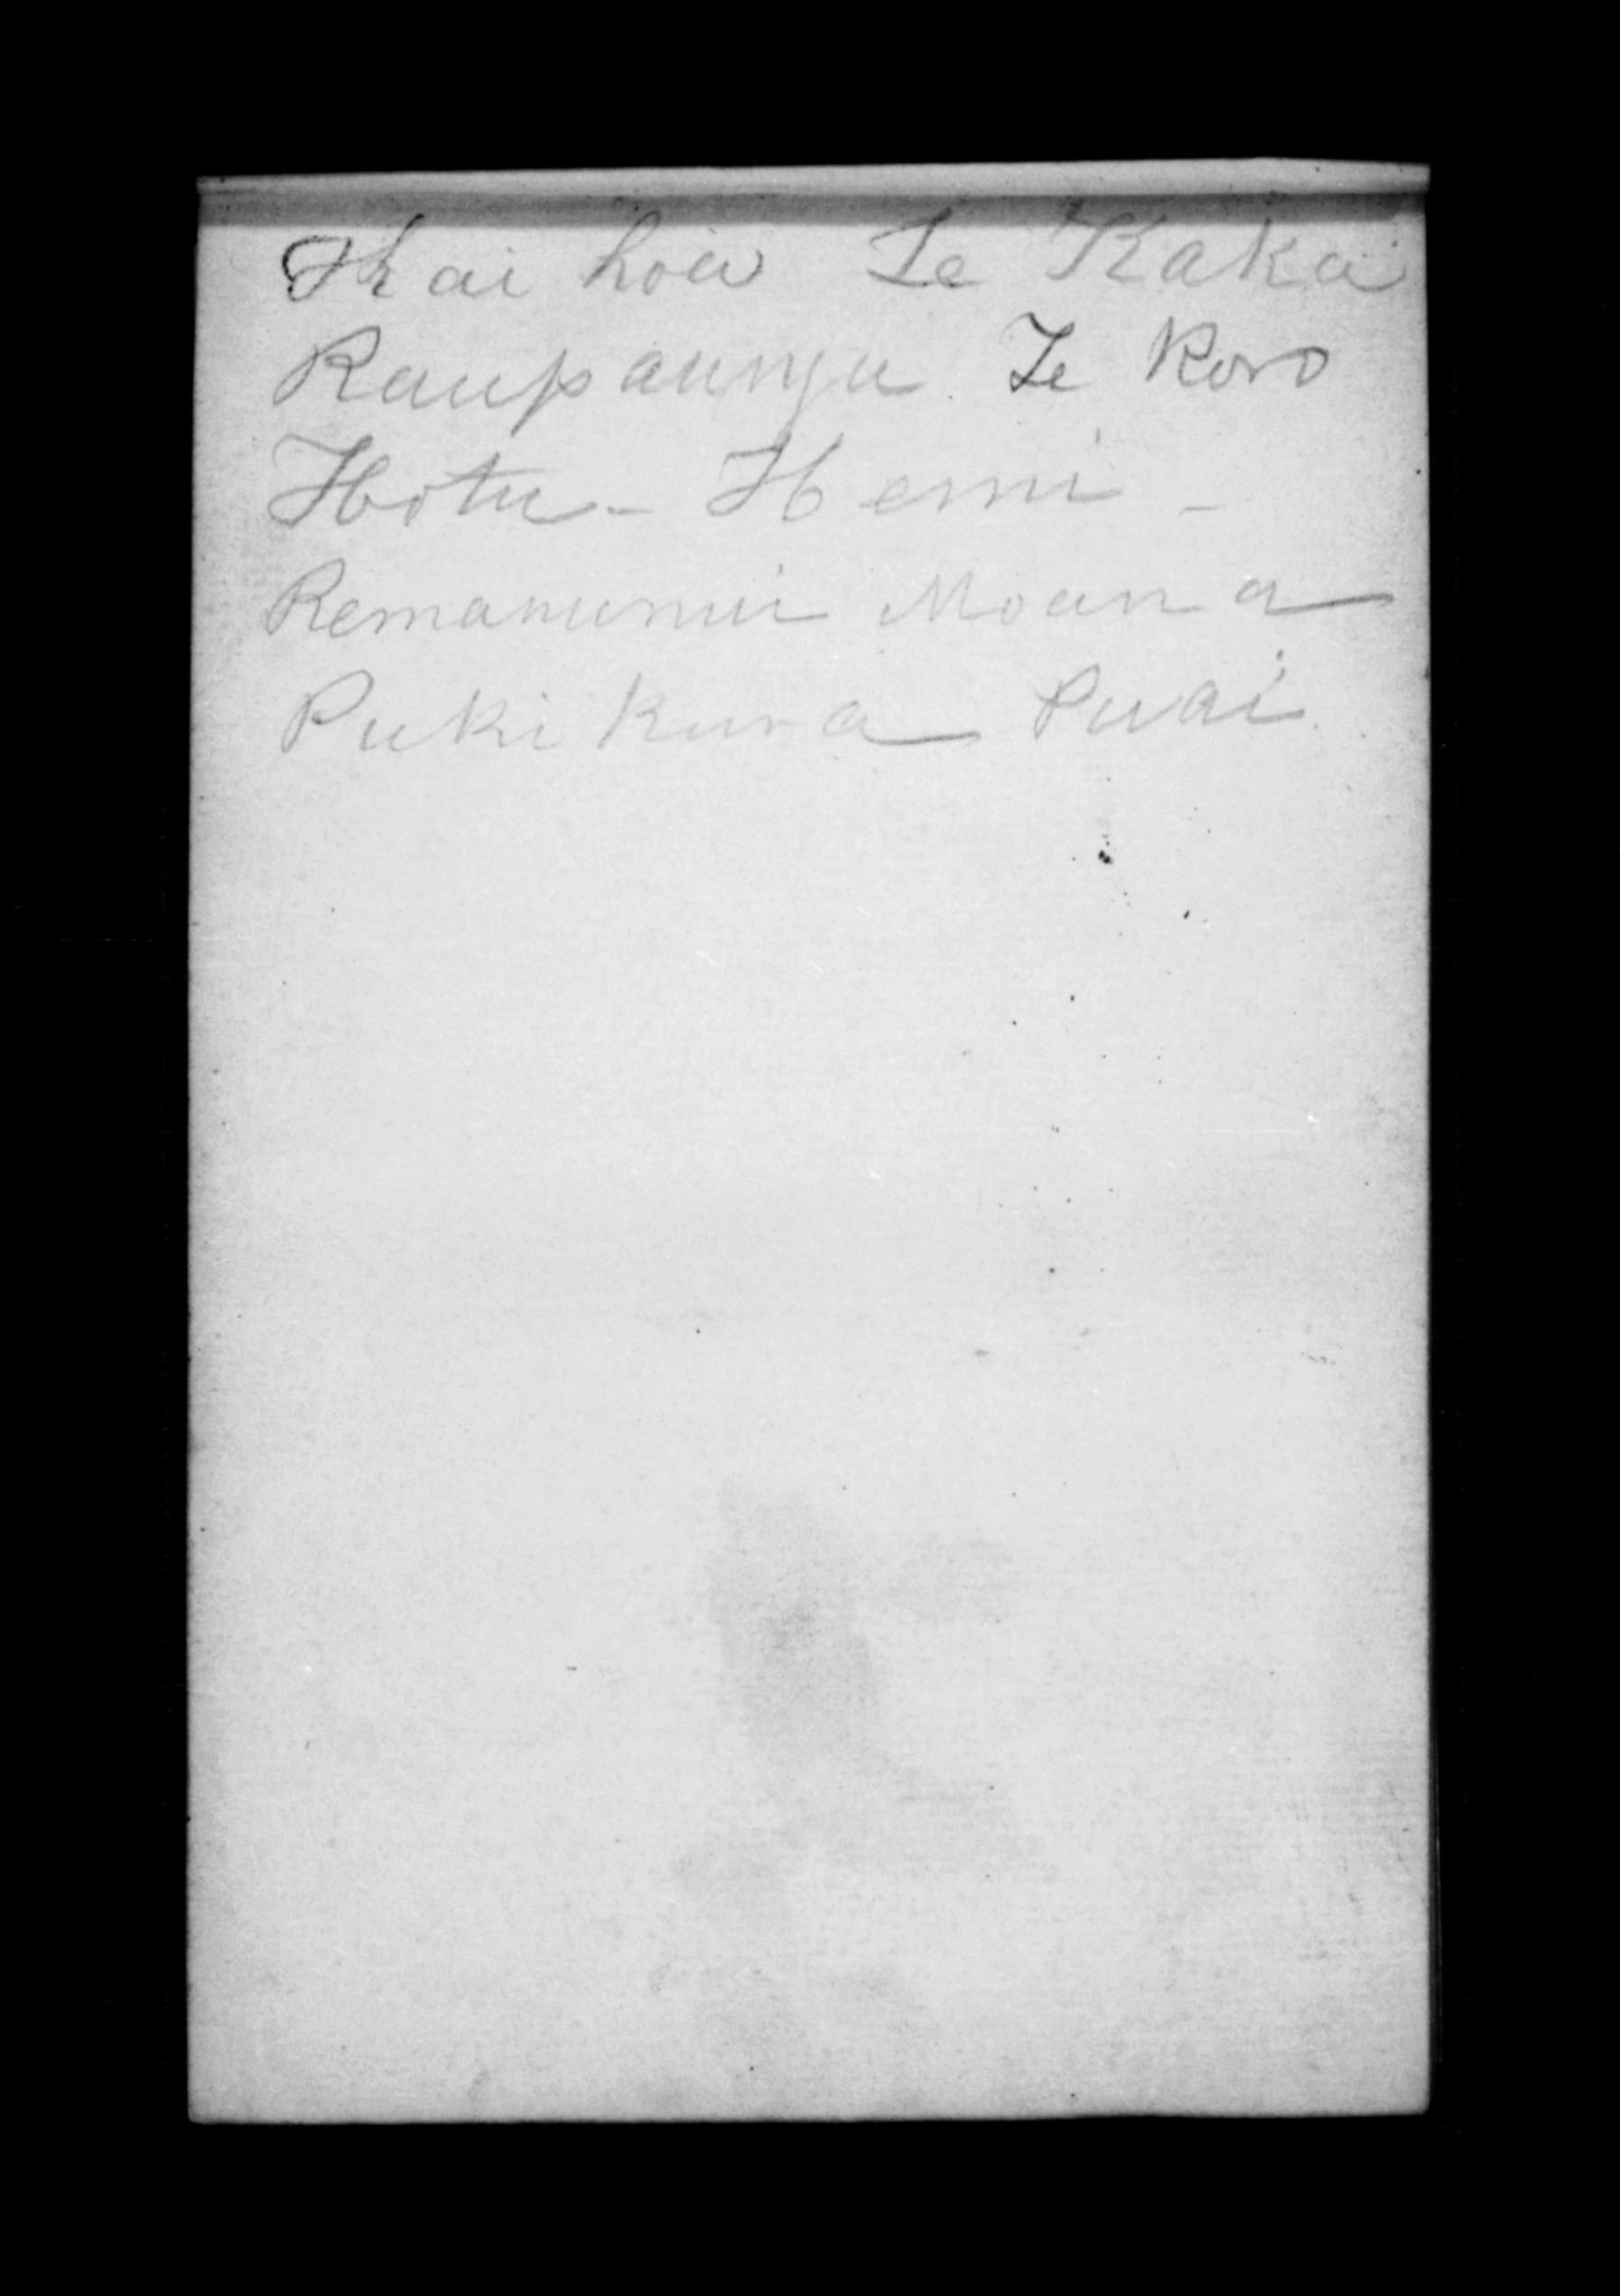 Kai hoa Te Kaka
Raupaunga Te Koro
Hotu - Hemi -
Remanumui Moana
Pukikura Puai